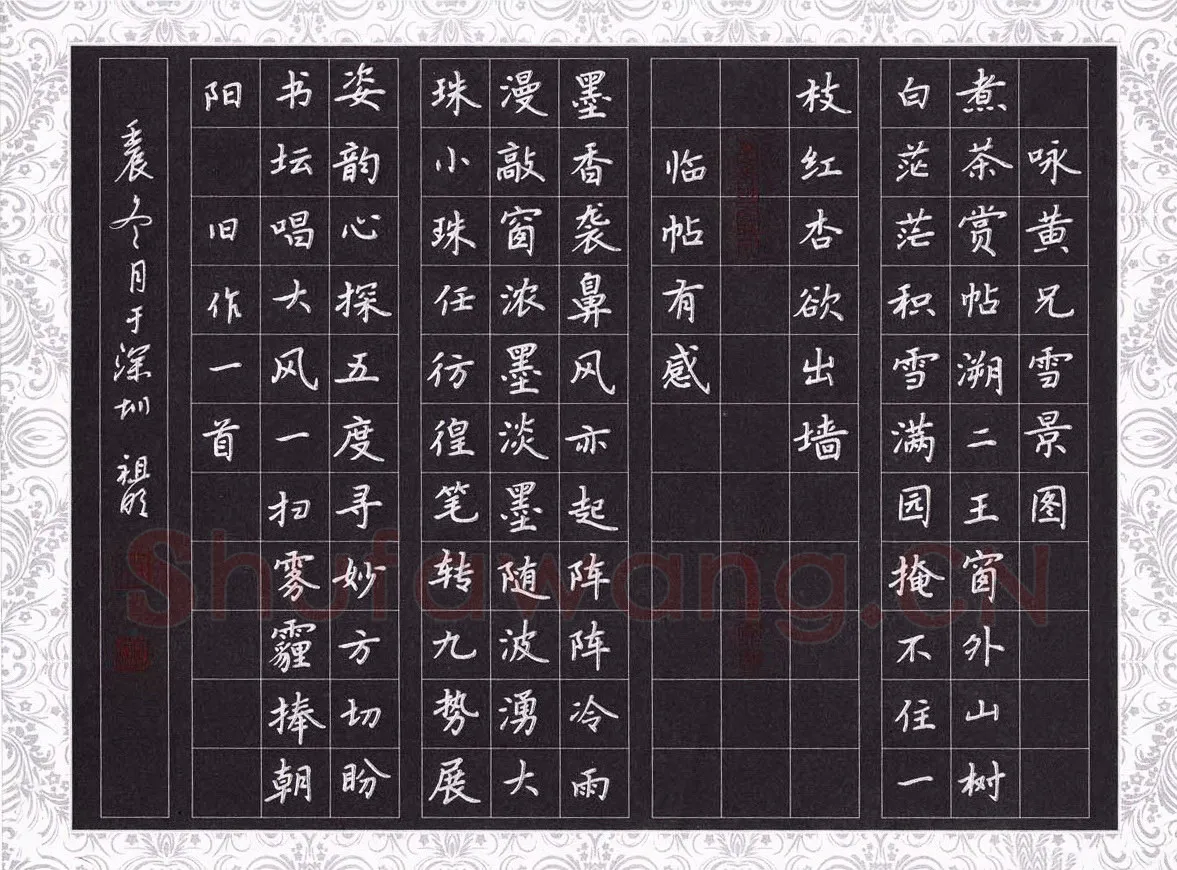 咏黄兄雪景图
煮茶赏帖溯二王窗外山树
白茫茫积雪满园掩不住一
枝红杏欲出墙
临帖有感
墨香袭鼻风亦起阵阵冷雨
漫敲窗浓墨淡墨随波湧大
珠小珠任彷徨笔转九势展
姿韵心探五度寻妙方切盼
书坛唱大风一扫雾霾捧朝
阳 旧作一首
冬月于深圳 祖
Shufawang.CN